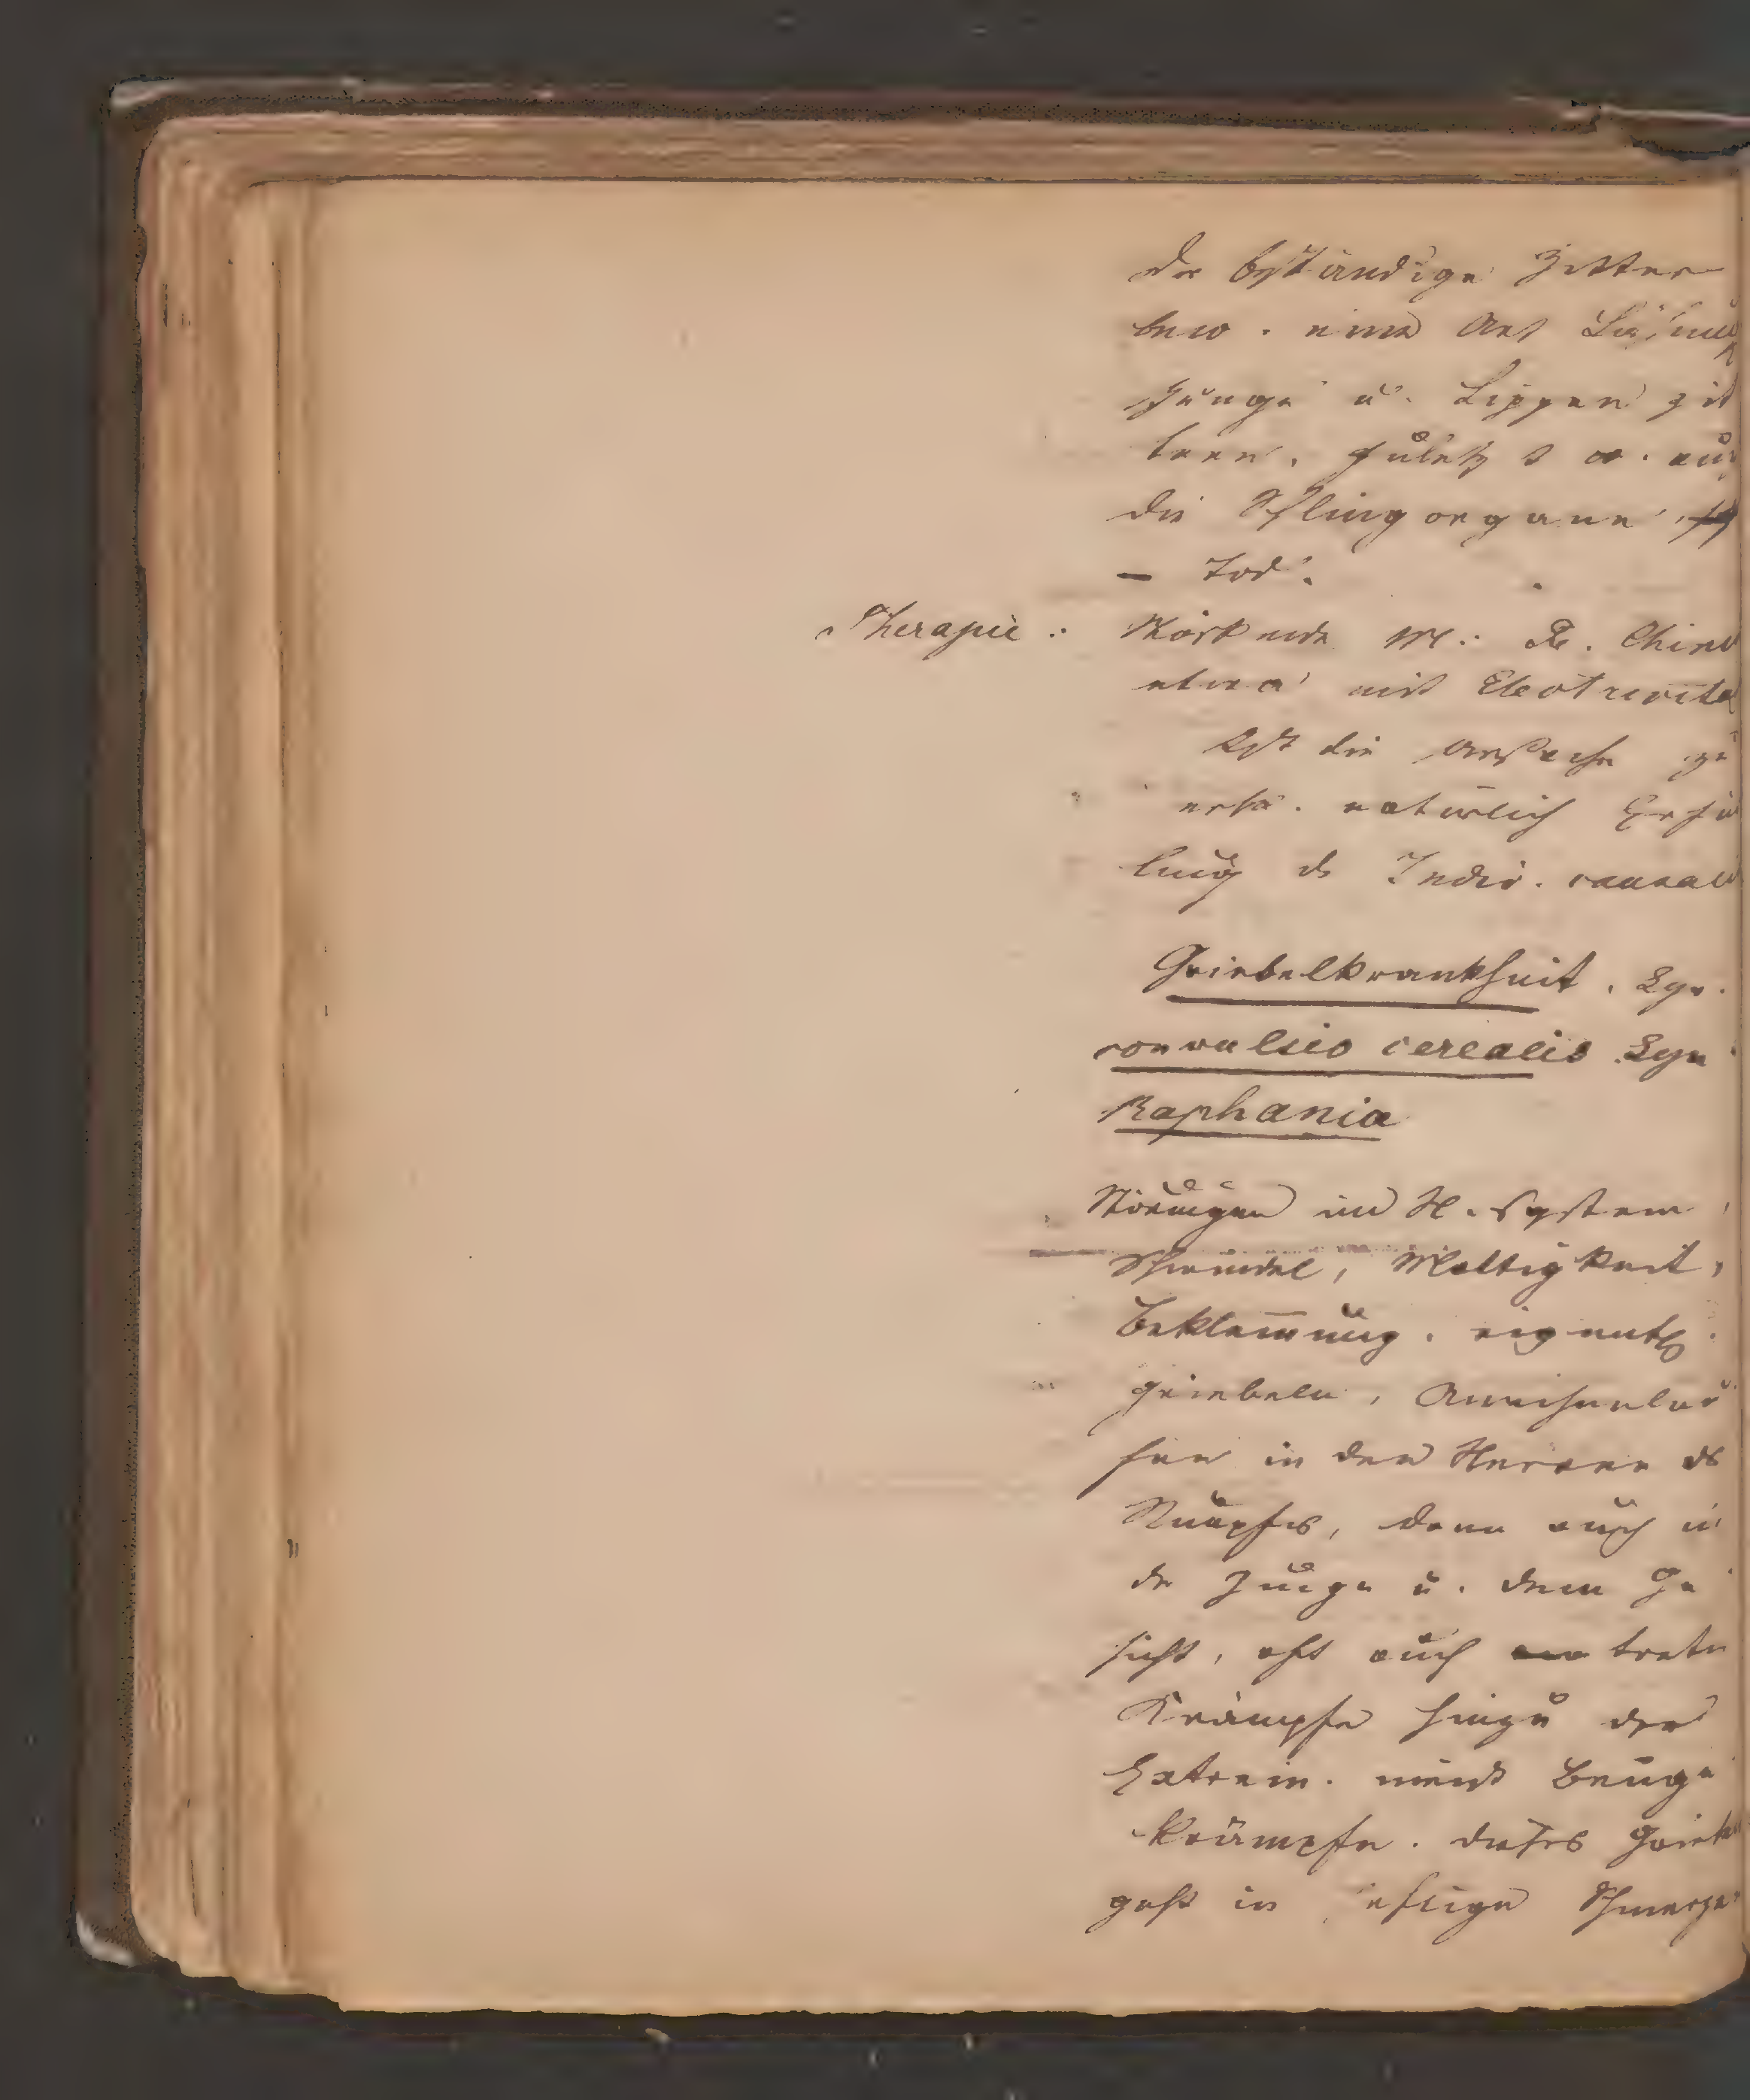 der beständige Zittern
bew. eine Art Lähmung
Zunge u. Lippen zit
tern, zuletzt w. auch
die Schlingorgane
– Tod.
Therapie: Stärkende M.: R. Chin
etwa mit Electricität
Ist die Ursache zu
natürlich Erfül
lung d Indic. causal
Griebelkrankheit. Syn.
convulsio cerealis Syn
Raphania
Störungen im N. System,
Schwindel, Mattigkeit,
Beklemmung. eigentl.
griebeln, Ameisenlau
fen in den Nerven ds
Rumpfes, dann auch in
der Zunge u. dem Ge
sicht, oft auch treten
Krämpfe hinzu der
Extrem. meist Beuge
krämpfe. dieses Griebeln
geht in heftige Schmerzen